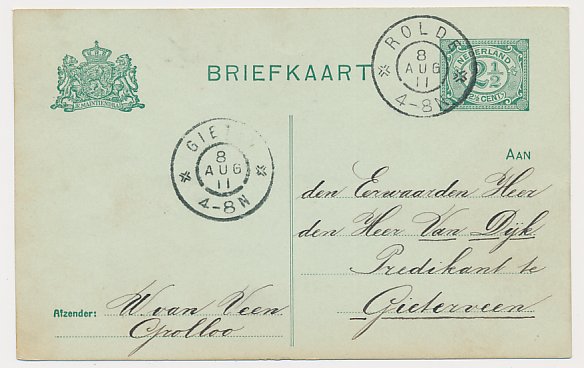 JE MAINTIENDRAI
BRIEFKAART
NEDERLAND
2½
2½ CENT
ROLDE
8
AUG
11
4-8N
GIETEN
8
AUG
11
4-8N
AAN
den Eerwaarden Heer
den Heer Van Dijk
Predikant te
Gieterveen
Afzender: W. van Veen
Grolloo